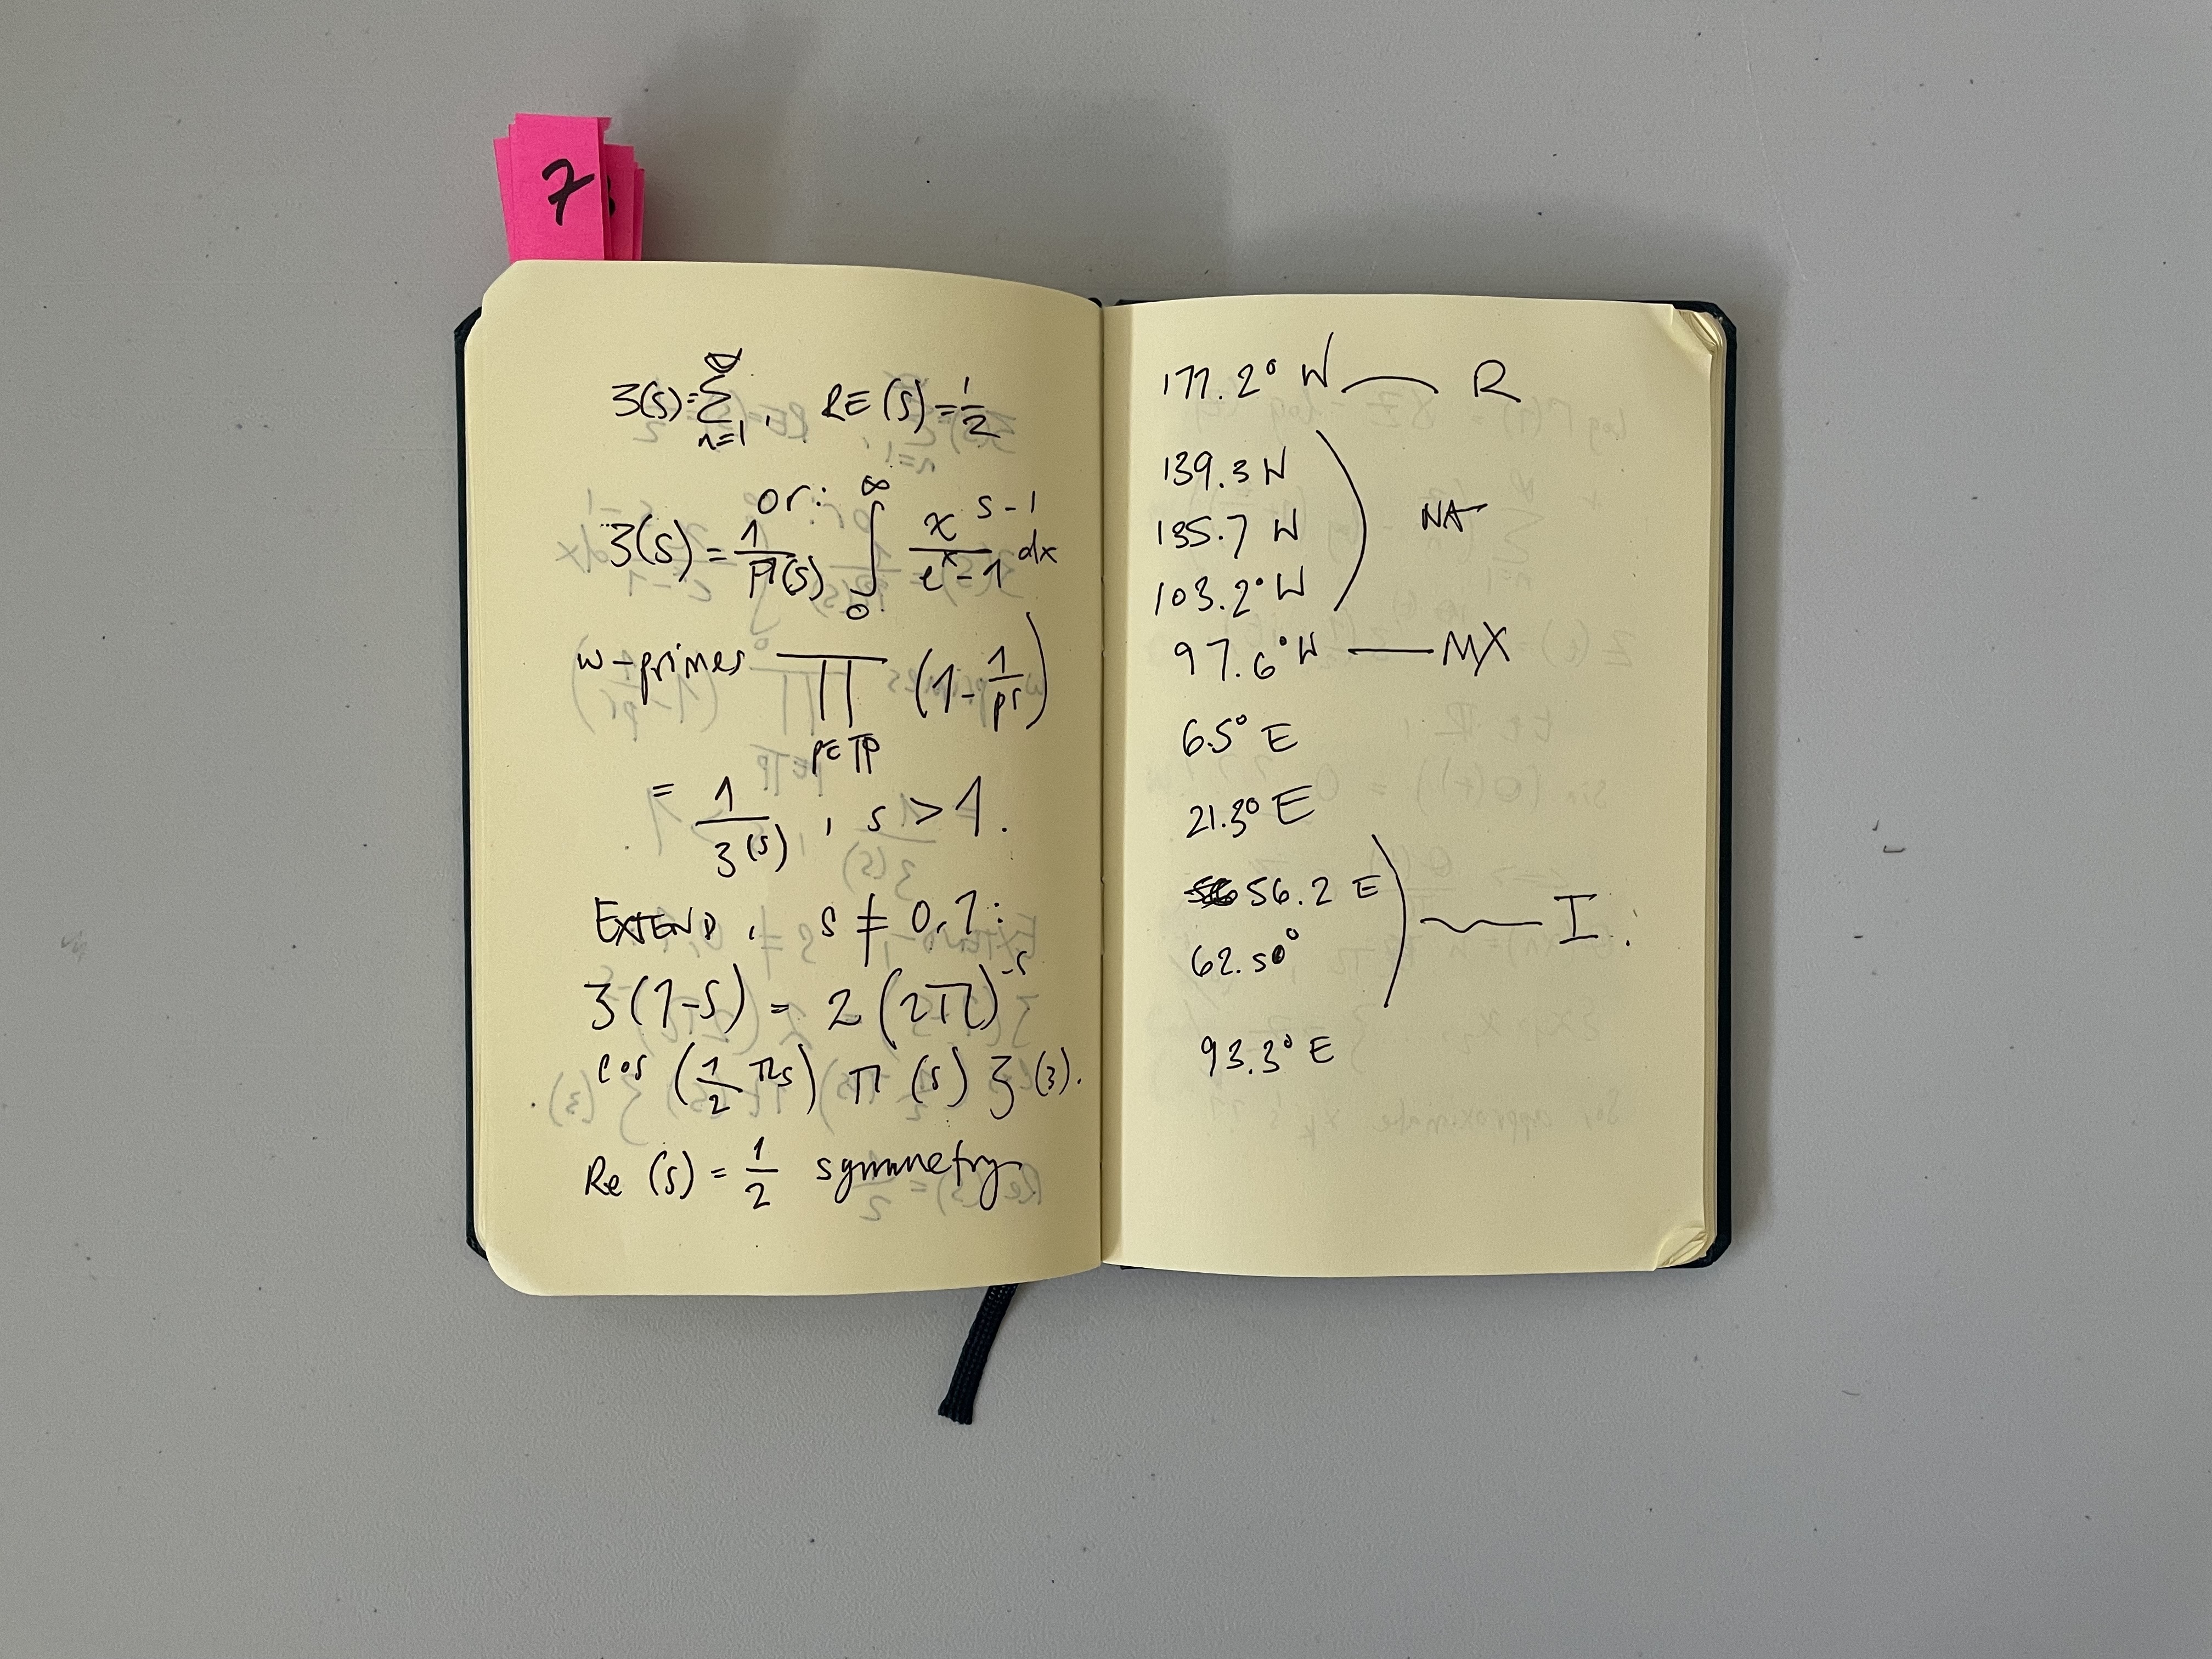 7
ζ(s)=∑_{n=1}^{∞}, RE(s)=1/2
or:
ζ(s) = 1/Π(s) ∫_0^∞ x^{s-1}/(e^x-1) dx
w-primes ∏_{p∈ℙ} (1-1/p^s)
= 1/ζ(s), s > 1.
EXTEND, s ≠ 0,1:
ζ(1-s) = 2(2π)^{-s}
cos (1/2 πs) π (s) ζ(3).
Re (s) = 1/2 symmetry
177.2° W — R
139.3 W
135.7 W
NA
103.2° W
97.6° W — MX
6.5° E
21.3° E
56.2 E
62.50°
I.
93.3° E